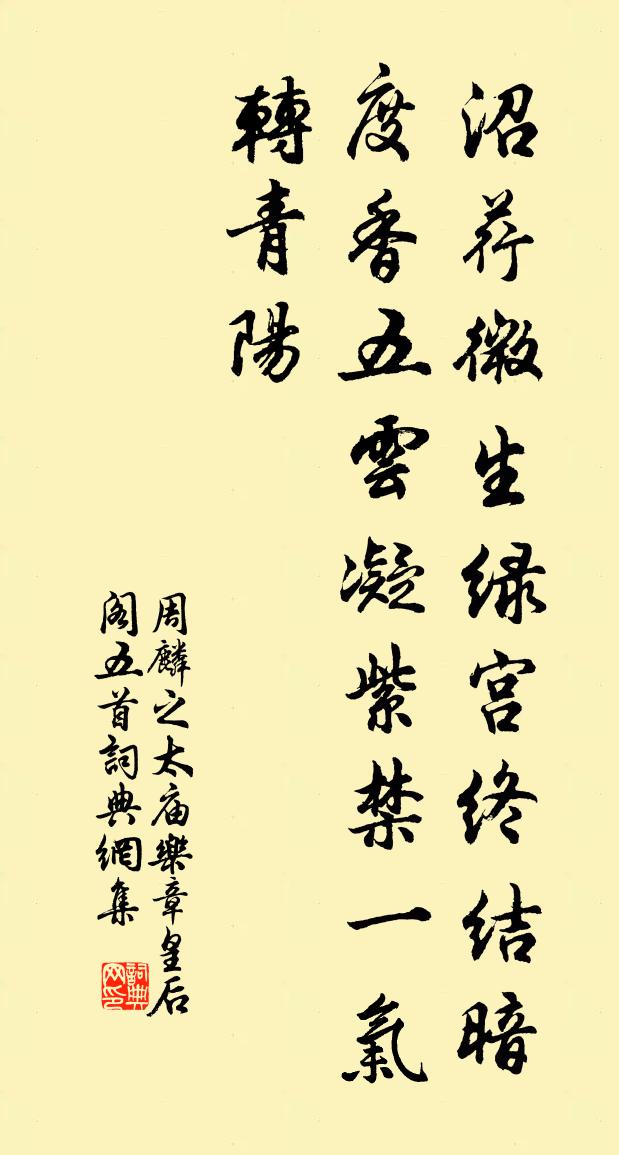 沼荇微生绿宫终结暗
度香五雲凝紫禁一氣
轉青陽
周麟之太庙樂章皇后
阁五首詞典網集
詞典
网印